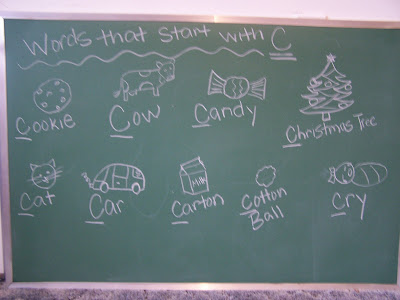 Words that start with C
Cookie
Cow
Candy
Christmas Tree
Cat
Car
MILK
Carton
Cotton
Ball
Cry